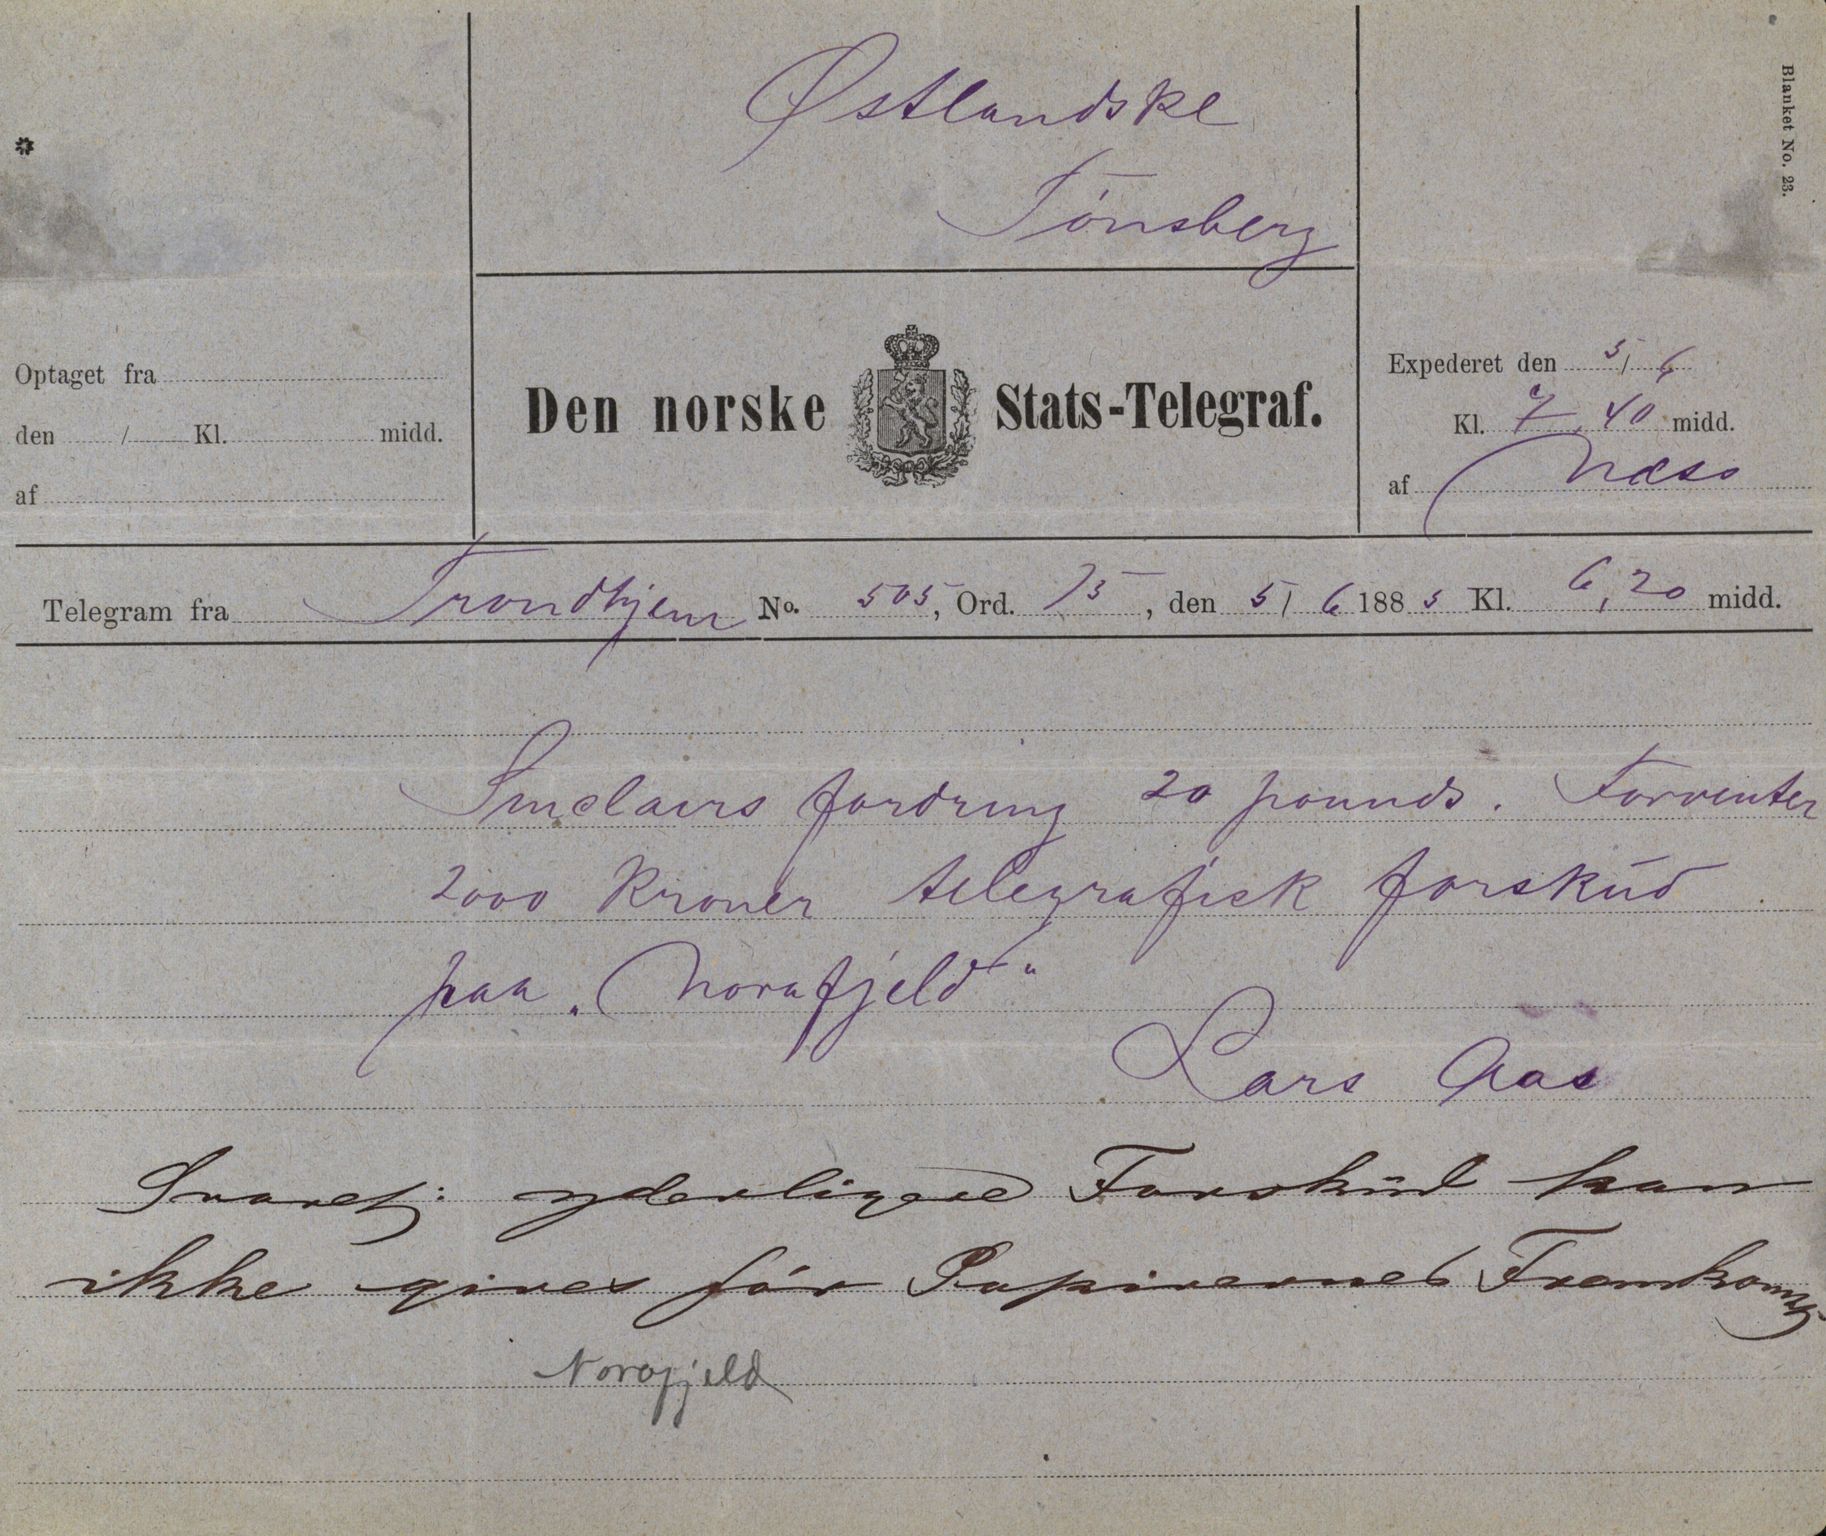 Østlandske
Tönsberg
Blanket No. 23.
*
Optaget fra
den / Kl. midd.
af
Den norske Stats-Telegraf.
Expederet den 5/6
Kl. 7,40 midd.
af Næss
Telegram fra Trondhjem No. 505, Ord. 15, den 5/6 1885 Kl. 6,20 midd.
Sinclairs fordring 20 pounds. Forventer
2000 Kroner telegrafisk forskud
paa "Norafjeld"
Lars Aas
Svaret: yderligere Forskud kan
ikke gives för Papirernes Fremkomst.
Norafjeld